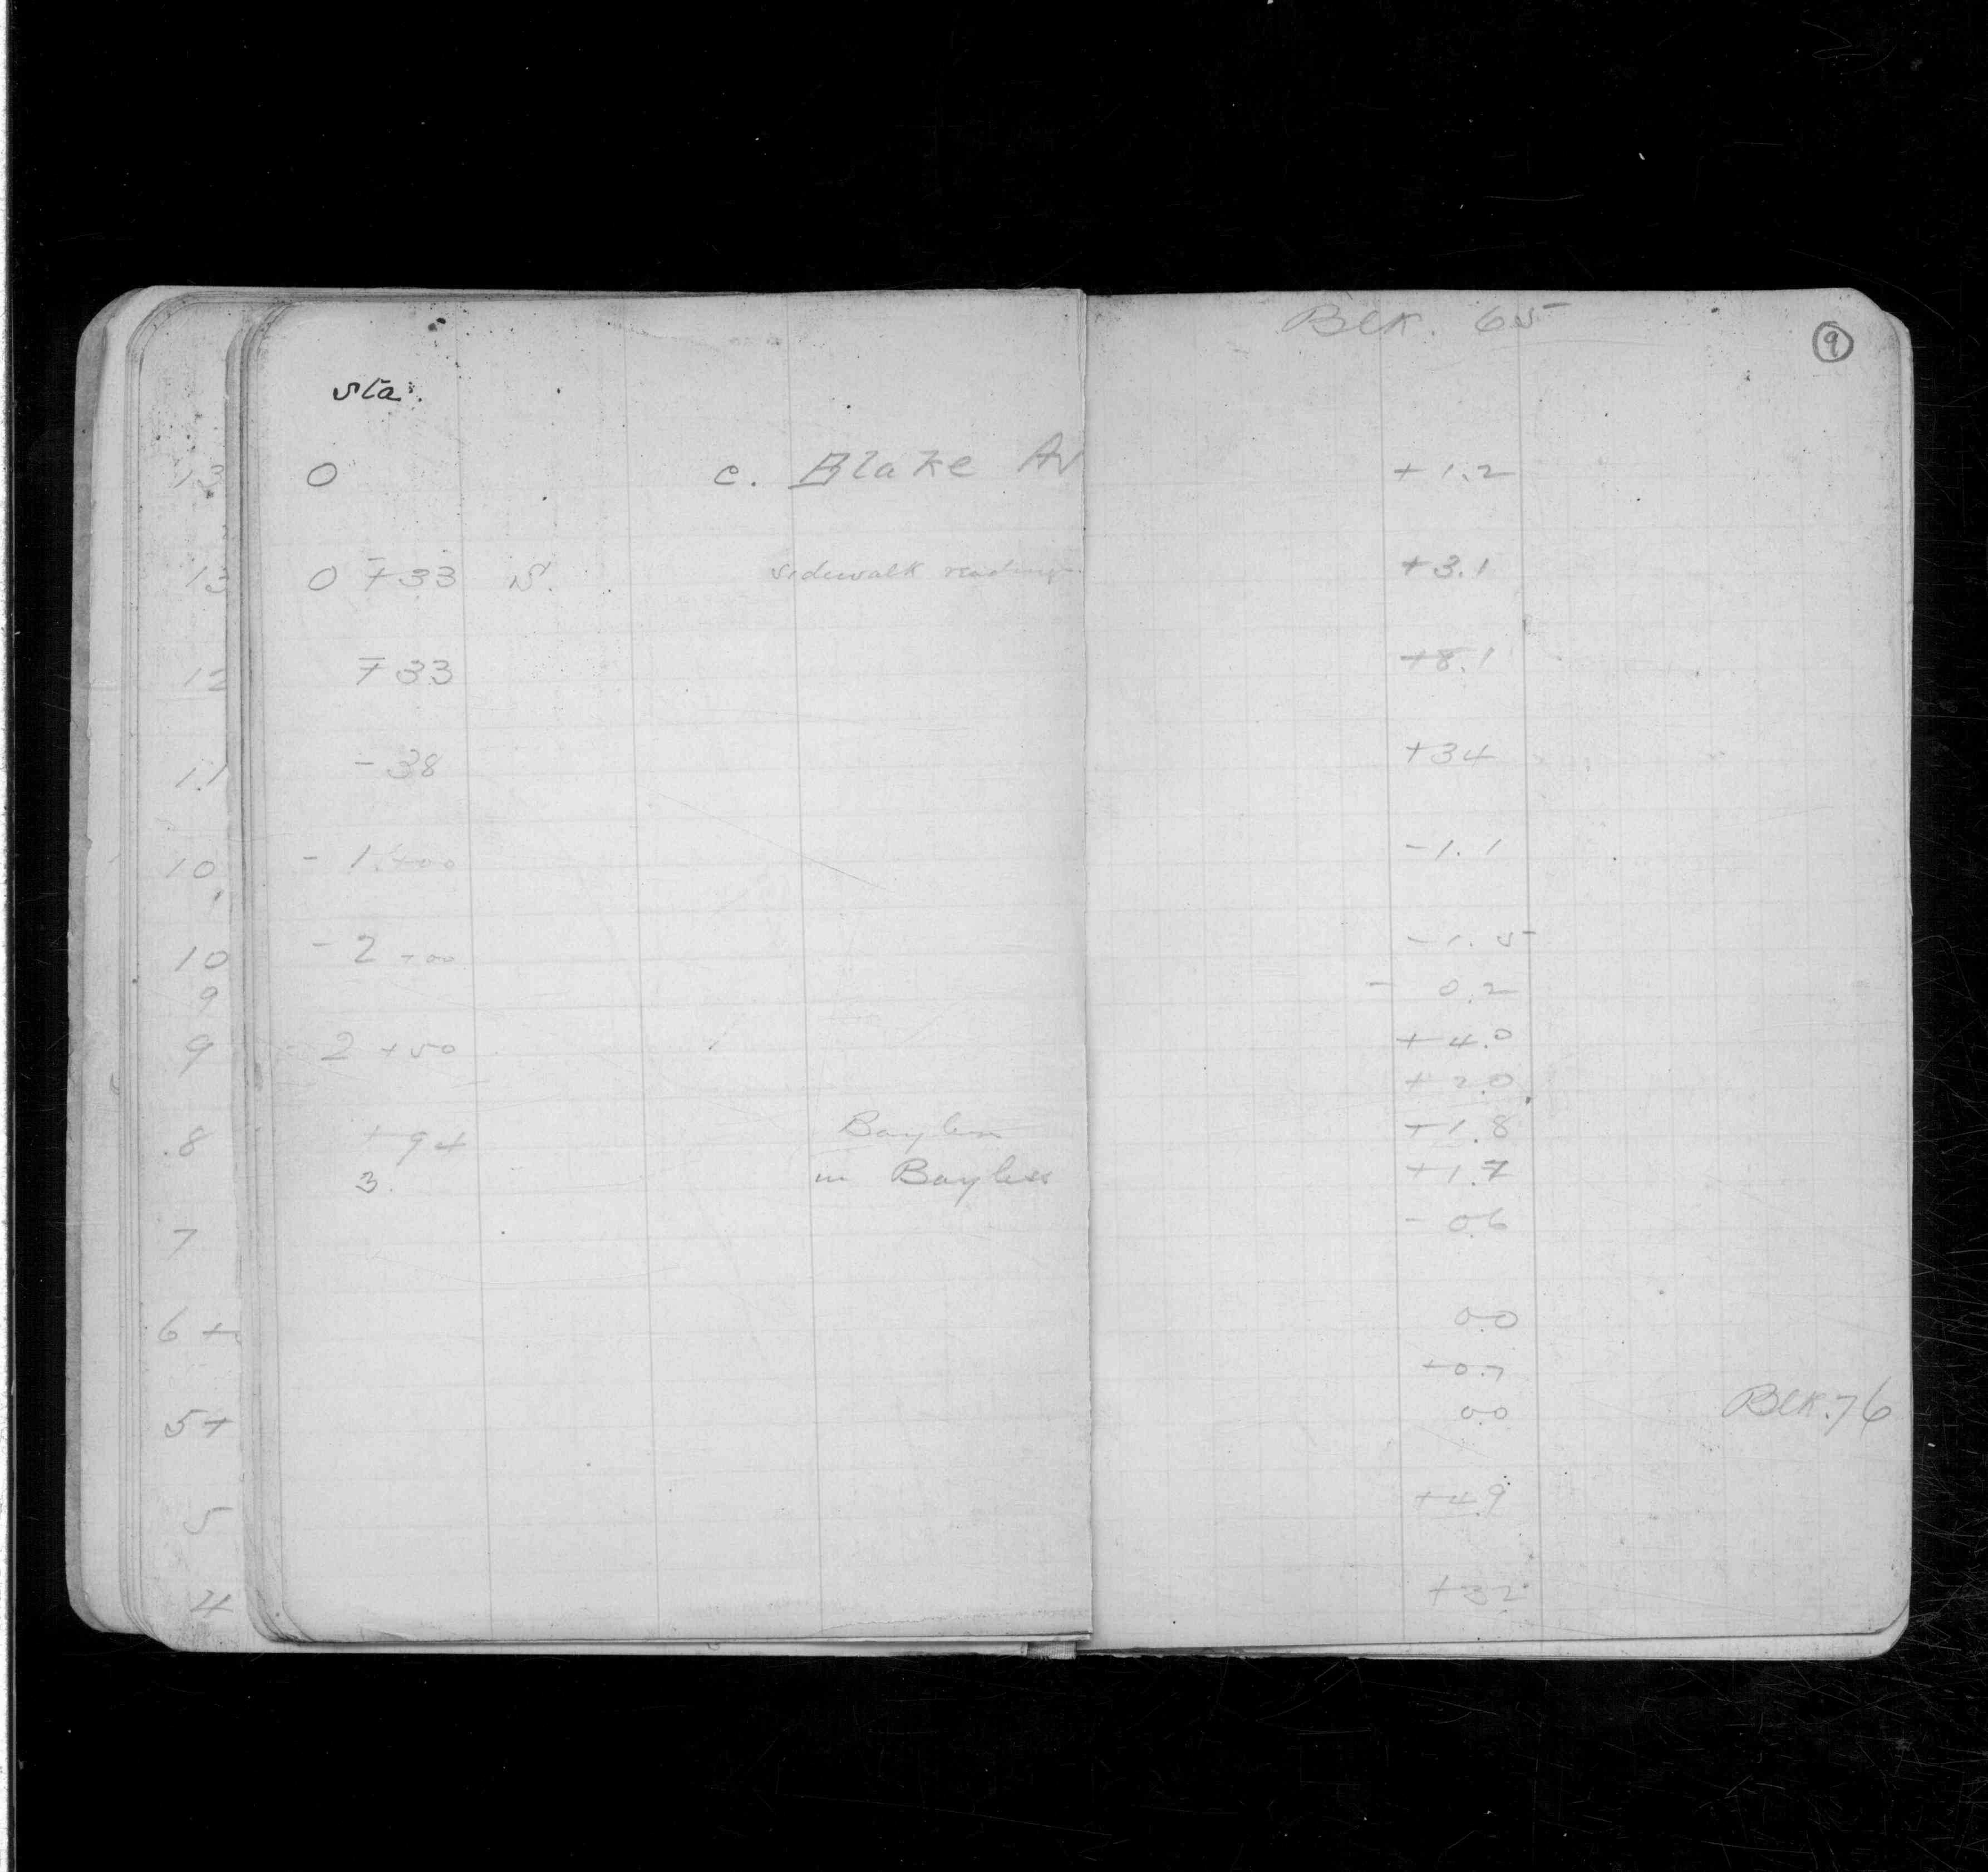 Blk. 65
9
Sta.
13 0 c. Blake Av +1.2
13 0 +33 S. sidewalk readings +3.1
12 +33 +8.1
11 -38 +34
10 -1+00 -1.1
10 -2+00 -1.5
9 -0.2
9 -2+50 +4.0
+2.0
8 +94 Bayless +1.8
3. in Bayless +1.7
7 -0.6
6+ 0.0
+0.7
5+ 0.0 Blk. 76
5 +4.9
4 +32